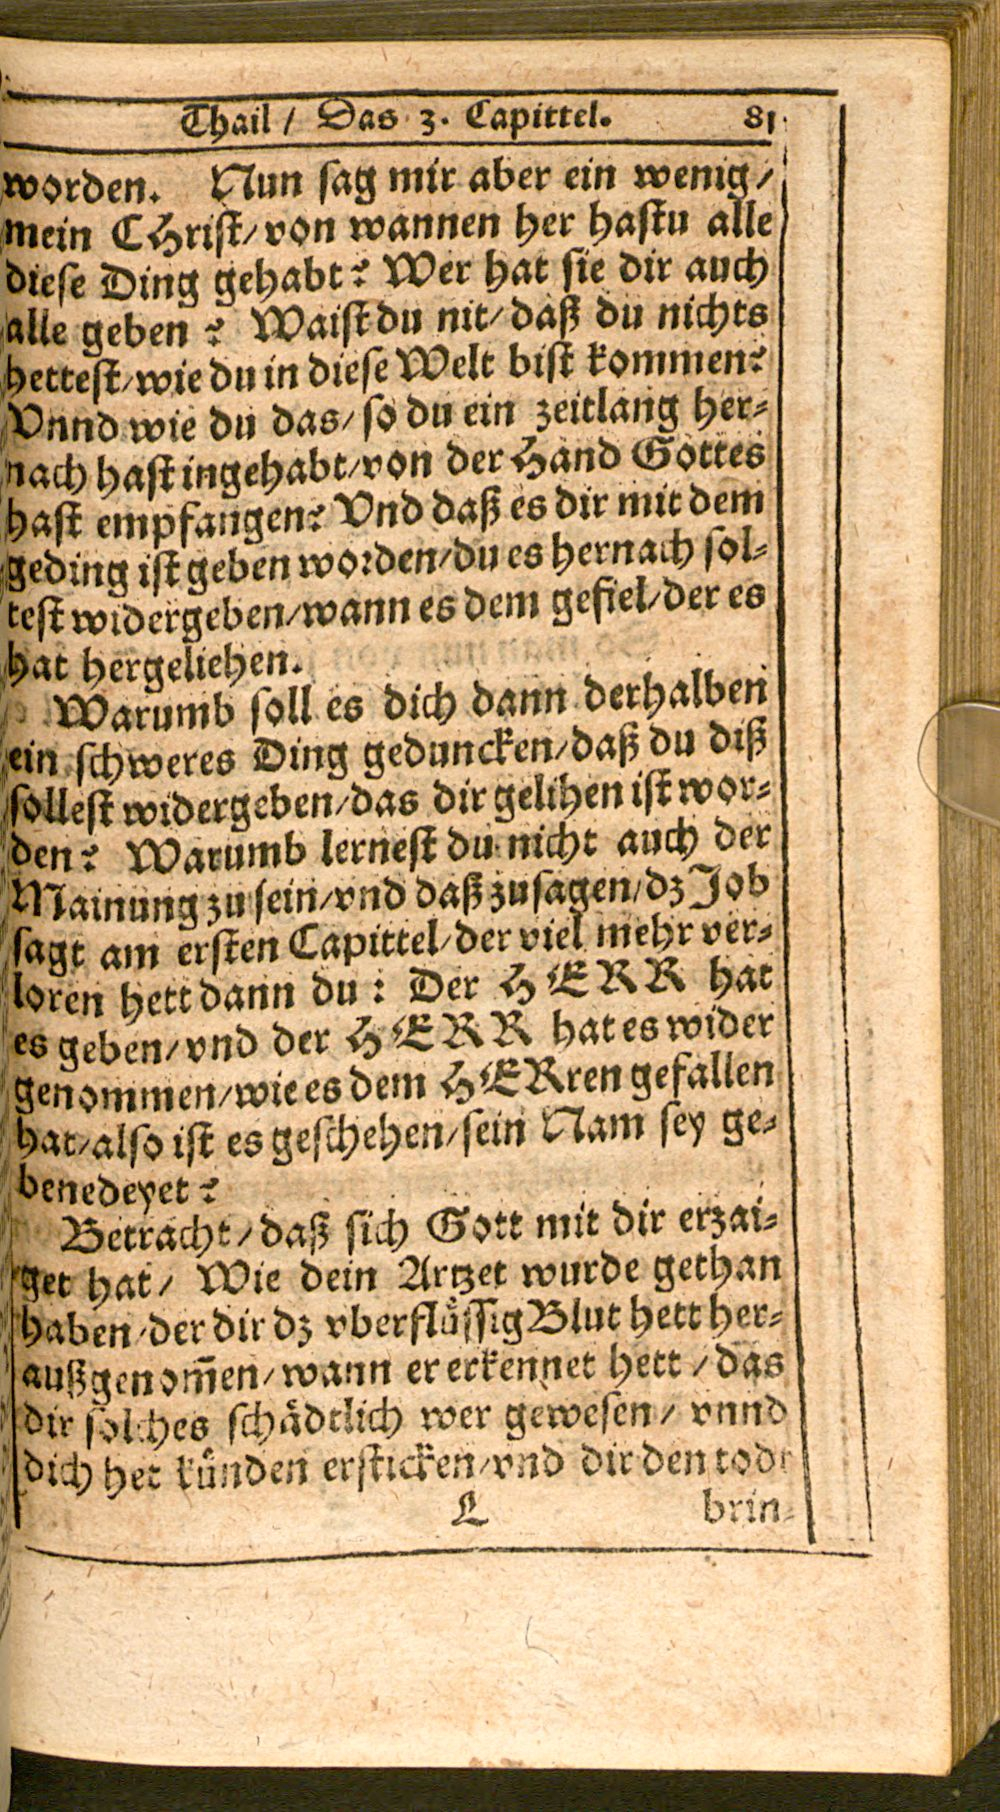 Thail / Das 3. Capittel. 81
worden. Nun sag mir aber ein wenig /
mein CHrist / von wannen her hastu alle
diese Ding gehabt? Wer hat sie dir auch
alle geben? Waist du nit / daß du nichts
hettest / wie du in diese Welt bist kommen?
Vnnd wie du das / so du ein zeitlang her-
nach hast ingehabt / von der Hand Gottes
hast empfangen? Vnd daß es dir mit dem
geding ist geben worden / du es hernach sol-
test widergeben / wann es dem gefiel / der es
hat hergeliehen.
Warumb soll es dich dann derhalben
ein schweres Ding geduncken / daß du diß
sollest widergeben / das dir gelihen ist wor-
den? Warumb lernest du nicht auch der
Mainung zu sein / vnd daß zusagen / dz Job
sagt am ersten Capittel / der viel mehr ver-
loren hett dann du: Der HERR hat
es geben / vnd der HERR hat es wider
genommen / wie es dem HERren gefallen
hat / also ist es geschehen / sein Nam sey ge-
benedeyet?
Betracht / daß sich Gott mit dir erzai-
get hat / Wie dein Artzet wurde gethan
haben / der dir dz vberflüssig Blut hett her-
auß genom̄en / wann er erkennet hett / das
dir solches schädtlich wer gewesen / vnnd
dich het künden ersticken / vnd dir den todt
L brin-